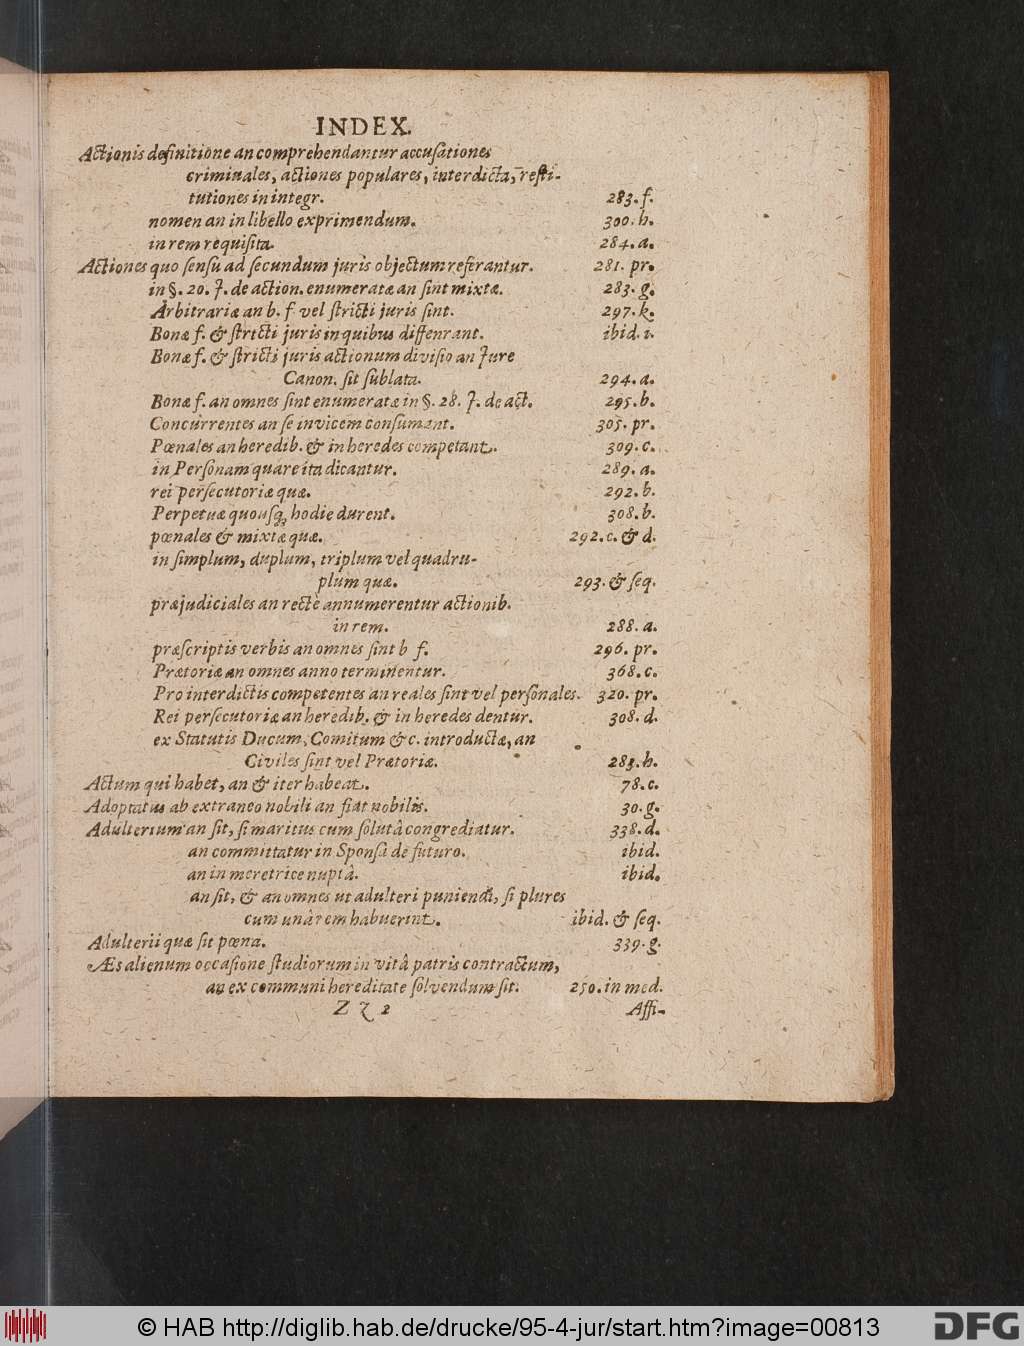 INDEX.
Actionis definitione an comprehendantur accusationes
criminales, actiones populares, interdicta, resti-
tutiones in integr. 283. f.
nomen an in libello exprimendum. 300. h.
in rem requisita. 284. a.
Actiones quo sensu ad secundum juris objectum referantur. 281. pr.
in §. 20. J. de action. enumeratæ an sint mixtæ. 283. g.
Arbitrariæ an b. f vel stricti juris sint. 297. k.
Bonæ f. & stricti juris in quibus differant. ibid. i.
Bonæ f. & stricti juris actionum divisio an Jure
Canon. sit sublata. 294. a.
Bonæ f. an omnes sint enumeratæ in §. 28. J. de act. 295. b.
Concurrentes an se invicem consumant. 305. pr.
Pœnales an heredib. & in heredes competant. 309. c.
in Personam quare ita dicantur. 289. a.
rei persecutoriæ quæ. 292. b.
Perpetuæ quousq; hodie durent. 308. b.
pœnales & mixtæ quæ. 292. c. & d.
in simplum, duplum, triplum vel quadru-
plum quæ. 293. & seq.
præjudiciales an rectè annumerentur actionib.
in rem. 288. a.
præscriptis verbis an omnes sint b f. 296. pr.
Prætoriæ an omnes anno terminentur. 368. c.
Pro interdictis competentes an reales sint vel personales. 320. pr.
Rei persecutoriæ an heredib. & in heredes dentur. 308. d.
ex Statutis Ducum, Comitum & c. introductæ, an
Civiles sint vel Prætoriæ. 285. h.
Actum qui habet, an & iter habeat. 78. c.
Adoptatus ab extraneo nobili an fiat nobilis. 30. g.
Adulterium an sit, si maritus cum solutâ congrediatur. 338. d.
an committatur in Sponsâ de futuro. ibid.
an in meretrice nuptâ. ibid.
an sit, & an omnes ut adulteri puniendi, si plures
cum unâ rem habuerint. ibid. & seq.
Adulterii quæ sit pœna. 339. g.
Æs alienum occasione studiorum in vitâ patris contractum,
an ex communi hereditate solvendum sit. 250. in med.
Z z 2 Affi-
© HAB http://diglib.hab.de/drucke/95-4-jur/start.htm?image=00813
DFG